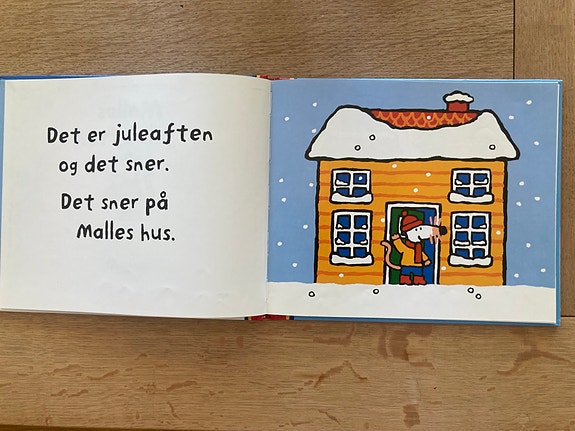 Det er juleaften
og det sner.
Det sner på
Malles hus.